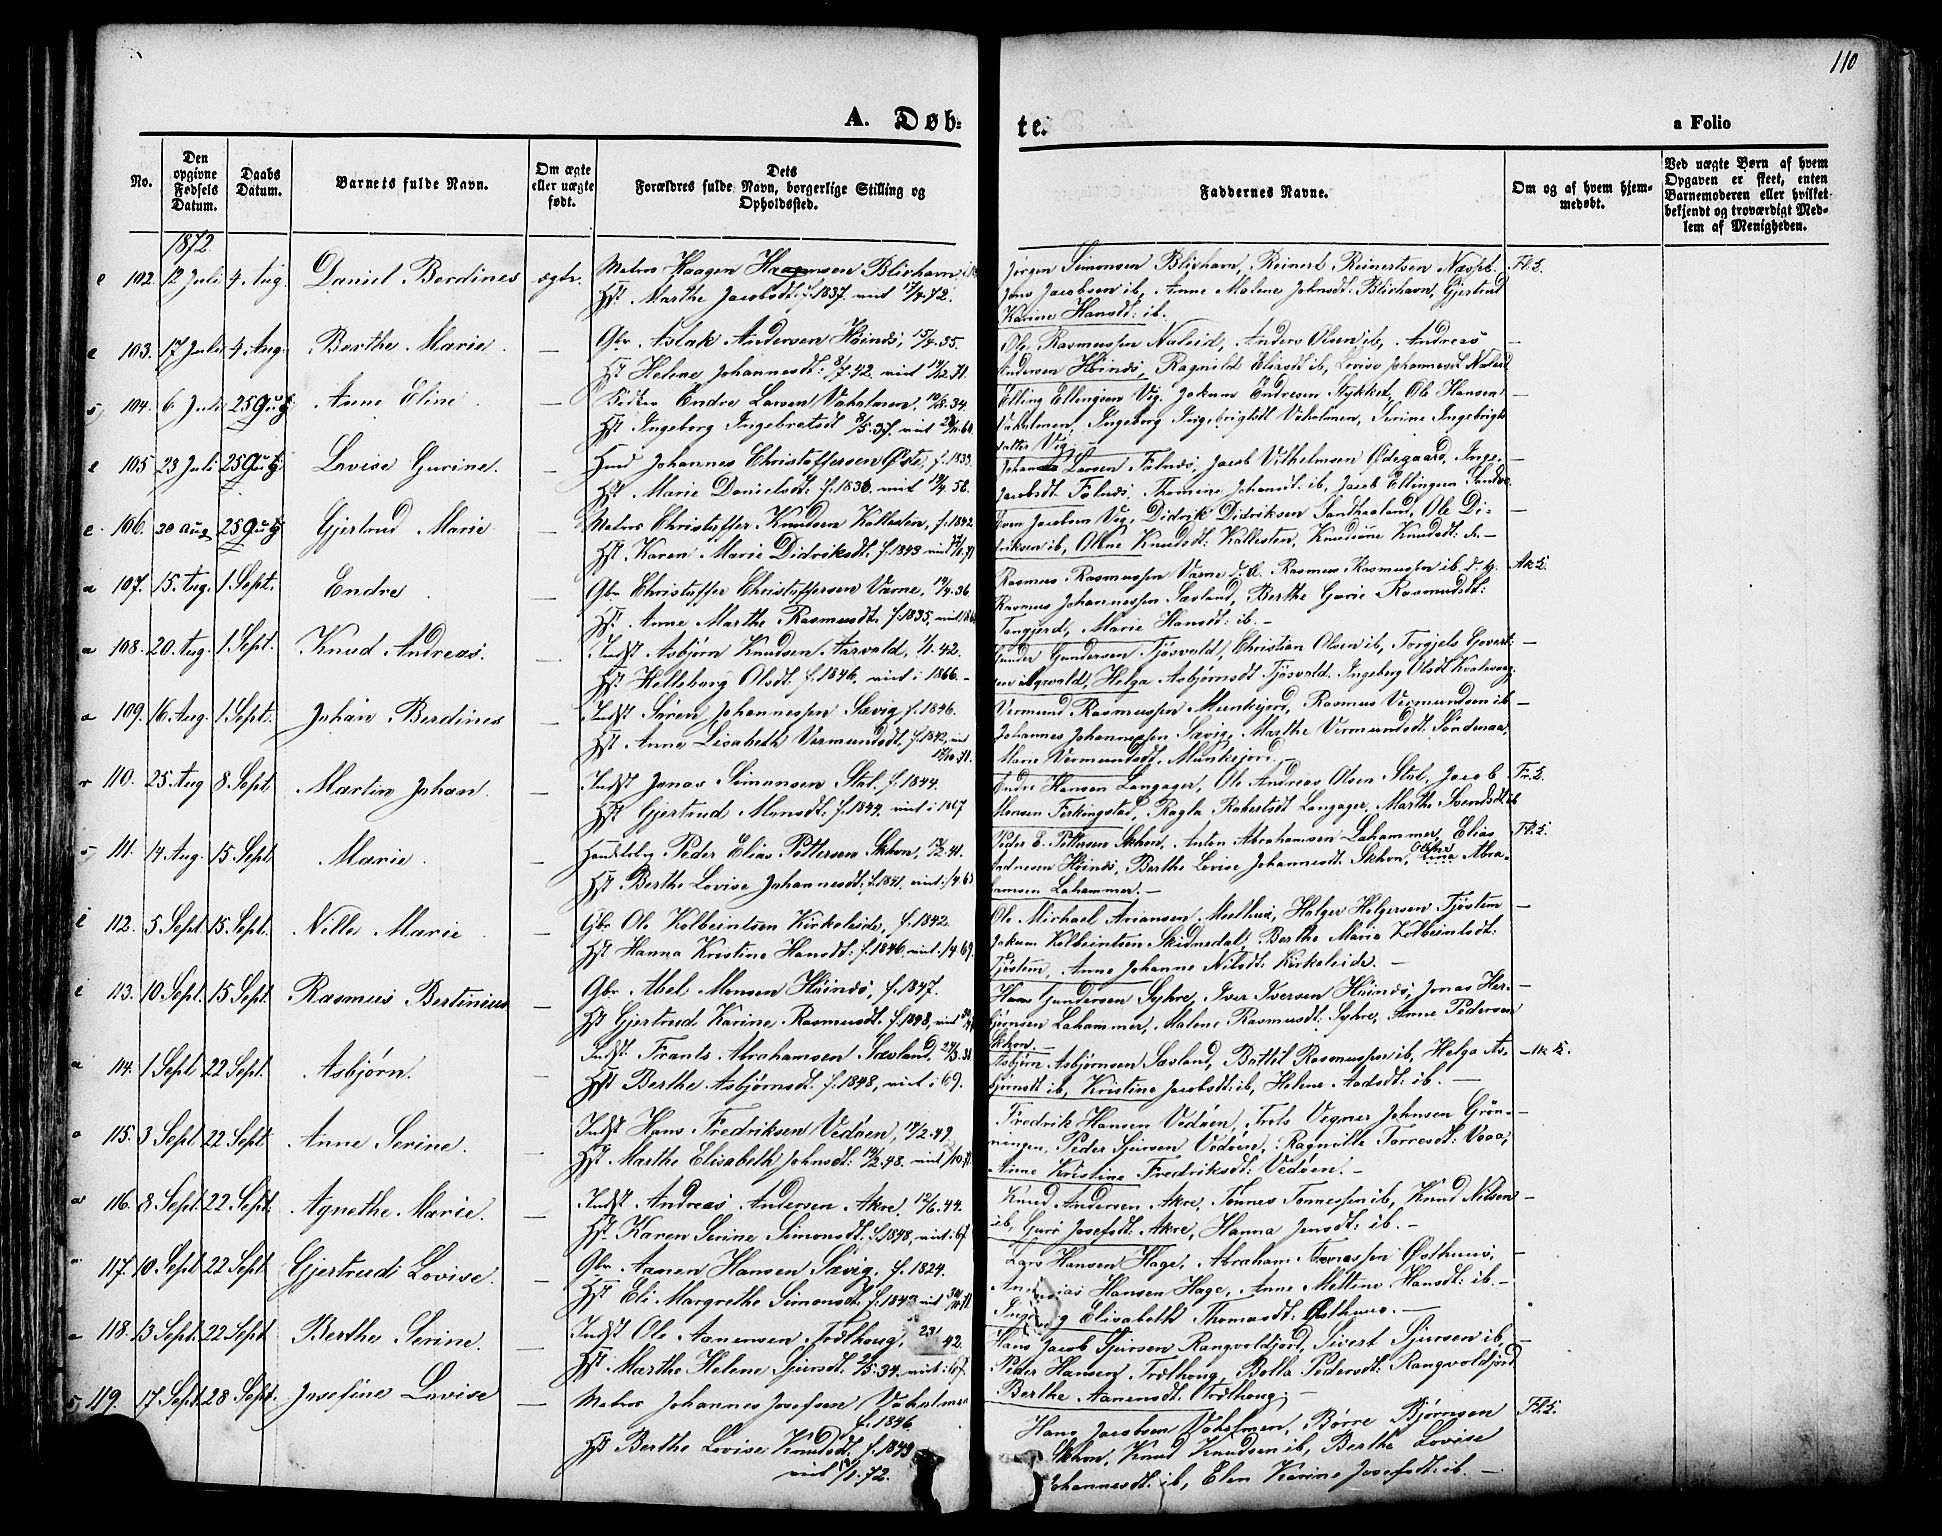 110
A. Døb-
te.
a Folio
No.
Den opgivne Fødsels Datum.
Daabs Datum.
Barnets fulde Navn.
Om ægte eller uægte født.
Dets Forældres fulde Navn, borgerlige Stilling og Opholdssted.
Faddernes Navne.
Om og af hvem hjem-
medøbt.
Ved uægte Børn af hvem
Opgaven er skeet, enten
Barnemoderen eller hvilket
bekjendt og troværdigt Med-
lem af Menigheden.
1872.
102. 12 Juli 4 Aug. Daniel Berdines ægte. Matros Haagen Haagensen Blixhavn
Hst Marthe Jacobsdt. f. 1837. viet 17/4.72.
Jørgen Simonsen Blixhavn, Reinert Reinertsen
Jens Jacobsen ib, Anne Malene Johnsdt: Blixhavn, Gjertrud
Karine Hansdt: ib.
103. 17 Juli 4 Aug. Berthe Marie. — Gbr Aslak Andersen Høinds, 15/4.35.
Hst Helene Johannesdt: 8/7.42. viet 14/12.71.
Ole Rasmussen Naleid, Anders Olsen ib, Andreas
Andersen Høinds, Ragnild Eliasdt ib, Lovise Johannesdt Naleid
104. 6 Juli 25 Aug Anne Eline. — Endre Larsen Vaholmen, 34.
Hst Ingeborg Ingebretsdt 8/5.37. viet
Elling Ellingsen Vig. Jakum Endresen Stykket, Ole Hansen
Vaholmen, Ingeborg Ingebrigtsdt Vaholmen, Serine Ingebrigts
datter Vig. —
105 23 Juli 25 Aug Lovise Gurine. — Huusd Johannes Christoffersen Østs, f. 1833.
Hst Marie Danielsdt. f. 1836, viet 58.
Johannes Larsen Følnds, Jacob Vilhelmsen Ødegaard, Inge
Jacobsdt Følnds, Thomine Johansdt: ib, Jacob Ellingsen
106. 20 Aug 25 Aug Gjertrud Marie — Matros Christoffer Knudsen Kallesten, f. 1842
Hst. Karen Marie Didriksdt. f. 1843
Sven Jacobsen Vig, Didrik Didriksen Sandhaaland, Ole Di-
driksen ib, Oline Knudsdt: Kallesten, Knudine Knudsdt: d. —
107. 15. Aug. 1. Sept. Endre. — Gbr Christoffer Christoffersen Varne, 36
Hst. Anne Marthe Rasmusdt. f. 1835,
Rasmus Rasmussen Varne d. æ. Rasmus Rasmussen ib. d. y. Ak S.
Rasmus Johannessen Sævland, Berthe Gurie Rasmusdt:
Tangjerd, Marie Hansdt: ib. —
108. 20. Aug. 1 Sept. Knud Andreas. — Indst Asbjørn Knudsen Aarvald, 42.
Hst. Helleborg Olsdt. f. 1846, viet i 1866. —
Gunder Gundersen Tjøsvold, Christian Olsen ib, Torgjels Govert-
Helga Asbjørnsdt Tjøsvold. Ingeborg Olsdt
109. 16 Aug. 1. Sept. Johan Berdines — Indst Søren Johannessen Sævig f. 1846.
Hst. Anne Lisabeth Vermundsdt. f. 1842,
Vermund Rasmussen Munkejord, Rasmus Vermundsen ib —
Johannes Johannessen Sævig, Marthe Vermundsdt Søndenaa,
Marie Vermundsdt. Munkejord.
110. 25 Aug 8 Sept Martin Johan. — Indst Jonas Simonsen Stol, f. 1844.
Hst Gjertrud Monsdt: f. 1844. viet i 1867
Andre Hansen Langager, Ole Andreas Olsen Stol, Jacob
Monsen Ferkingstad, Ragla Robertsdt Langager, Marthe Svendsdt ib
111. 14 Aug. 15 Sept Marie. — Handelsbg Peder Elias Pettersen Skhvn, 41.
Hst Berthe Lovise Johannesdt: f. 1841,
Peder E. Pettersen Skhvn, Anton Abrahamsen Lahammer, Elias
Andresen Høinds, Berthe Lovise Johannesdt: Skhvn, Abra-
hamsen Lahammer. —
112. 5 Sept 15 Sept. Nille Marie. — Gbr Ole Kolbeintsen Kirkeleide, f. 1842.
Hst Hanna Kristine Hansdt: f. 1846, viet: /4.69.
Ole Michael Ariansen Medhus, Holger Holgersen Tjøstem —
Jakum Kolbeintsen Skidnedal, Berthe Marie Kolbeintsdt:
Tjøstem, Anne Johanne Nilsdt. Kirkeleide. —
113. 10 Sept. 15 Sept Rasmus Bertinius — Gbr Abel Monsen Høinds, f. 1847.
Hst Gjertrud Karine Rasmusdt. f. 1848,
Hans Gundersen Syhre, Iver Iversen Høinds, Jonas Her-
bjørnsen Lahammer, Malene Rasmusdt: Syhre, Anne Pedersen
Skhvn. —
114. 1 Sept 22 Sept. Asbjørn. — Indst. Frants Abrahamsen Sævland,
Hst Berthe Asbjørnsdt. f. 1848, viet i 69.
Asbjørn Asbjørnsen Sævland, Bottel Rasmussen ib, Helga As- Ak S.
bjørnsdt ib, Kristine Jacobsdt: ib, Helene Aadsdt: ib. —
115. 3 Sept 22 Sept Anne Serine. — Indst Hans Fredriksen Vedøen, 14/2.49.
Hst Marthe Elisabeth Johnsdt: 48.
Fredrik Hansen Vedøen, Vegner Johnsen Grøn-
ningen, Peder Sjursen Vedøen, Ragnille Torresdt: Veaa,
Anne Kristine Fredriksdt: Vedøen. —
116. 8 Sept. 22 Sept. Agnethe Marie. — Indst Andreas Andersen Akre, 12/6.44.
Hst. Karen Serine Simonsdt. f. 1848, viet: 67
Knud Andersen Akre, Tønnes Tønnessen ib, Knud Nilsen
ib, Guro Josefsdt: Akre, Hanna Jensdt: ib. —
117. 10 Sept 22 Sept Gjertrude Lovise. — Gbr Aanen Hansen Sævig. f. 1824.
Hst Eli Margrethe Simonsdt:
Lars Hansen Hage, Abraham Tomassen Østhuus,
Hansen Hage, Anne Mettine Hansdt: ib. —
Elisabeth Thomasdt: Østhuus. —
118. 13. Sept. 22 Sept Berthe Serine. — Indst Ole Aanensen Trælhoug, 42.
Hst. Marthe Helene Sjursdt. 34. viet: 67.
Hans Jacob Sjursen Rangvoldjord, Sivert Sjursen ib, —
Peder Hansen Trælhoug, Bolla Pedersdt: Rangvoldjord
Berthe Aanensdt. Trælhoug. —
119. 17 Sept. 28 Sept. Josefine Lovise — Matros Johannes Josefsen Vaholmen
f. 1846
Hst Berthe Lovise Knudsdt. f. 1849
viet /1.72.
Hans Jacobsen Vaholmen, Børre Bjørnsen
Skhvn, Knud Knudsen ib, Berthe Lovise
Johannesdt: ib, Elen Karine Josefsdt: ib. —